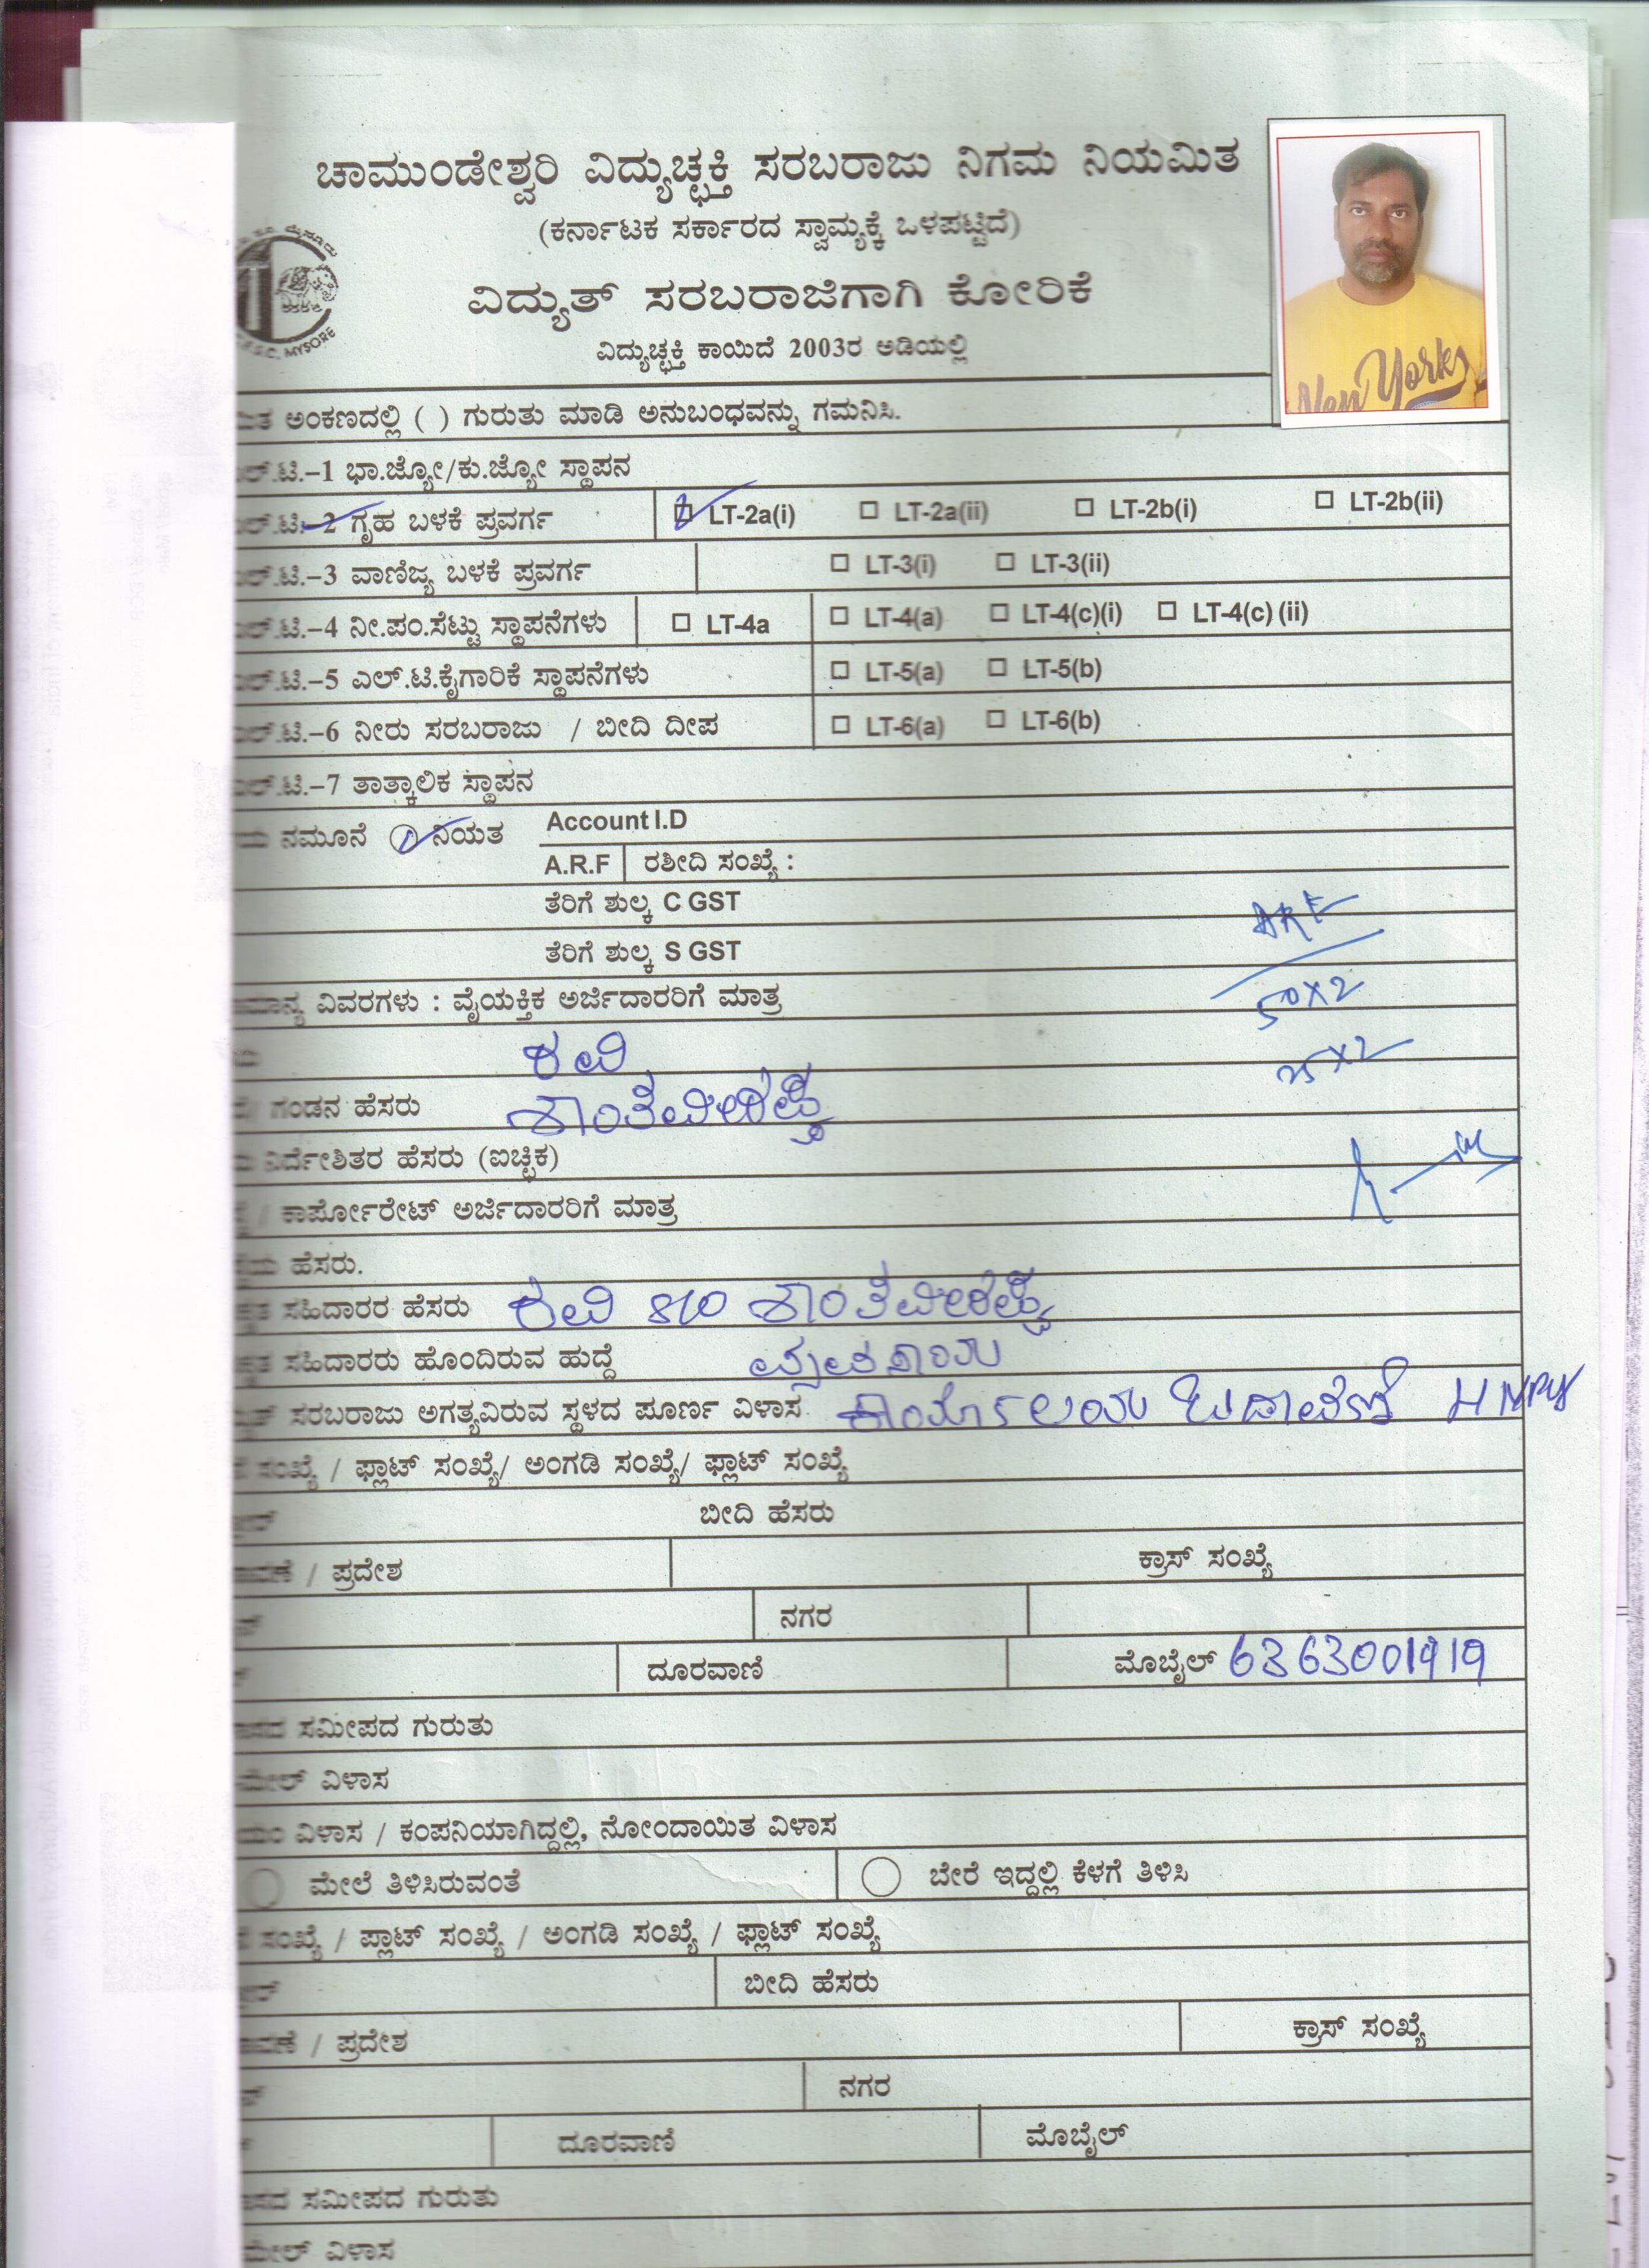 ಚಾಮುಂಡೇಶ್ವರಿ ವಿದ್ಯುಚ್ಛಕ್ತಿ ಸರಬರಾಜು ನಿಗಮ ನಿಯಮಿತ
(ಕರ್ನಾಟಕ ಸರ್ಕಾರದ ಸ್ವಾಮ್ಯಕ್ಕೆ ಒಳಪಟ್ಟಿದೆ)
MYSORE
ವಿದ್ಯುತ್ ಸರಬರಾಜಿಗಾಗಿ ಕೋರಿಕೆ
ವಿದ್ಯುಚ್ಛಕ್ತಿ ಕಾಯಿದೆ 2003ರ ಅಡಿಯಲ್ಲಿ
New York
ಅಂಕಣದಲ್ಲಿ ( ) ಗುರುತು ಮಾಡಿ ಅನುಬಂಧವನ್ನು ಗಮನಿಸಿ.
ಲ್.ಟಿ.–1 ಭಾ.ಜ್ಯೋ/ಕು.ಜ್ಯೋ ಸ್ಥಾಪನ
ಲ್.ಟಿ.–2 ಗೃಹ ಬಳಕೆ ಪ್ರವರ್ಗ LT-2a(i) LT-2a(ii) LT-2b(i) LT-2b(ii)
ಲ್.ಟಿ.–3 ವಾಣಿಜ್ಯ ಬಳಕೆ ಪ್ರವರ್ಗ LT-3(i) LT-3(ii)
ಲ್.ಟಿ.–4 ನೀ.ಪಂ.ಸೆಟ್ಟು ಸ್ಥಾಪನೆಗಳು LT-4a LT-4(a) LT-4(c)(i) LT-4(c) (ii)
ಲ್.ಟಿ.–5 ಎಲ್.ಟಿ.ಕೈಗಾರಿಕೆ ಸ್ಥಾಪನೆಗಳು LT-5(a) LT-5(b)
ಲ್.ಟಿ.–6 ನೀರು ಸರಬರಾಜು / ಬೀದಿ ದೀಪ LT-6(a) LT-6(b)
ಲ್.ಟಿ.–7 ತಾತ್ಕಾಲಿಕ ಸ್ಥಾಪನ
ನಮೂನೆ ನಿಯತ Account I.D
A.R.F ರಶೀದಿ ಸಂಖ್ಯೆ :
ತೆರಿಗೆ ಶುಲ್ಕ C GST
ARF
ತೆರಿಗೆ ಶುಲ್ಕ S GST
ವಿವರಗಳು : ವೈಯಕ್ತಿಕ ಅರ್ಜಿದಾರರಿಗೆ ಮಾತ್ರ 50X2
ರವಿ 25X2
ಗಂಡನ ಹೆಸರು ಶಾಂತವೀರಪ್ಪ
ನಿರ್ದೇಶಿತರ ಹೆಸರು (ಐಚ್ಛಿಕ)
/ ಕಾರ್ಪೋರೇಟ್ ಅರ್ಜಿದಾರರಿಗೆ ಮಾತ್ರ
ಹೆಸರು.
ಸಹಿದಾರರ ಹೆಸರು ರವಿ S/O ಶಾಂತವೀರಪ್ಪ
ಸಹಿದಾರರು ಹೊಂದಿರುವ ಹುದ್ದೆ ವ್ಯವಸಾಯ
ಸರಬರಾಜು ಅಗತ್ಯವಿರುವ ಸ್ಥಳದ ಪೂರ್ಣ ವಿಳಾಸ
ಸಂಖ್ಯೆ / ಫ್ಲಾಟ್ ಸಂಖ್ಯೆ/ ಅಂಗಡಿ ಸಂಖ್ಯೆ/ ಫ್ಲಾಟ್ ಸಂಖ್ಯೆ
ಬೀದಿ ಹೆಸರು
/ ಪ್ರದೇಶ ಕ್ರಾಸ್ ಸಂಖ್ಯೆ
ನಗರ
ದೂರವಾಣಿ ಮೊಬೈಲ್ 6363001919
ಸಮೀಪದ ಗುರುತು
ಮೇಲ್ ವಿಳಾಸ
ವಿಳಾಸ / ಕಂಪನಿಯಾಗಿದ್ದಲ್ಲಿ, ನೋಂದಾಯಿತ ವಿಳಾಸ
ಮೇಲೆ ತಿಳಿಸಿರುವಂತೆ ಬೇರೆ ಇದ್ದಲ್ಲಿ ಕೆಳಗೆ ತಿಳಿಸಿ
ಸಂಖ್ಯೆ / ಪ್ಲಾಟ್ ಸಂಖ್ಯೆ / ಅಂಗಡಿ ಸಂಖ್ಯೆ / ಫ್ಲಾಟ್ ಸಂಖ್ಯೆ
ಬೀದಿ ಹೆಸರು
/ ಪ್ರದೇಶ ಕ್ರಾಸ್ ಸಂಖ್ಯೆ
ನಗರ
ದೂರವಾಣಿ ಮೊಬೈಲ್
ಸಮೀಪದ ಗುರುತು
ಮೇಲ್ ವಿಳಾಸ